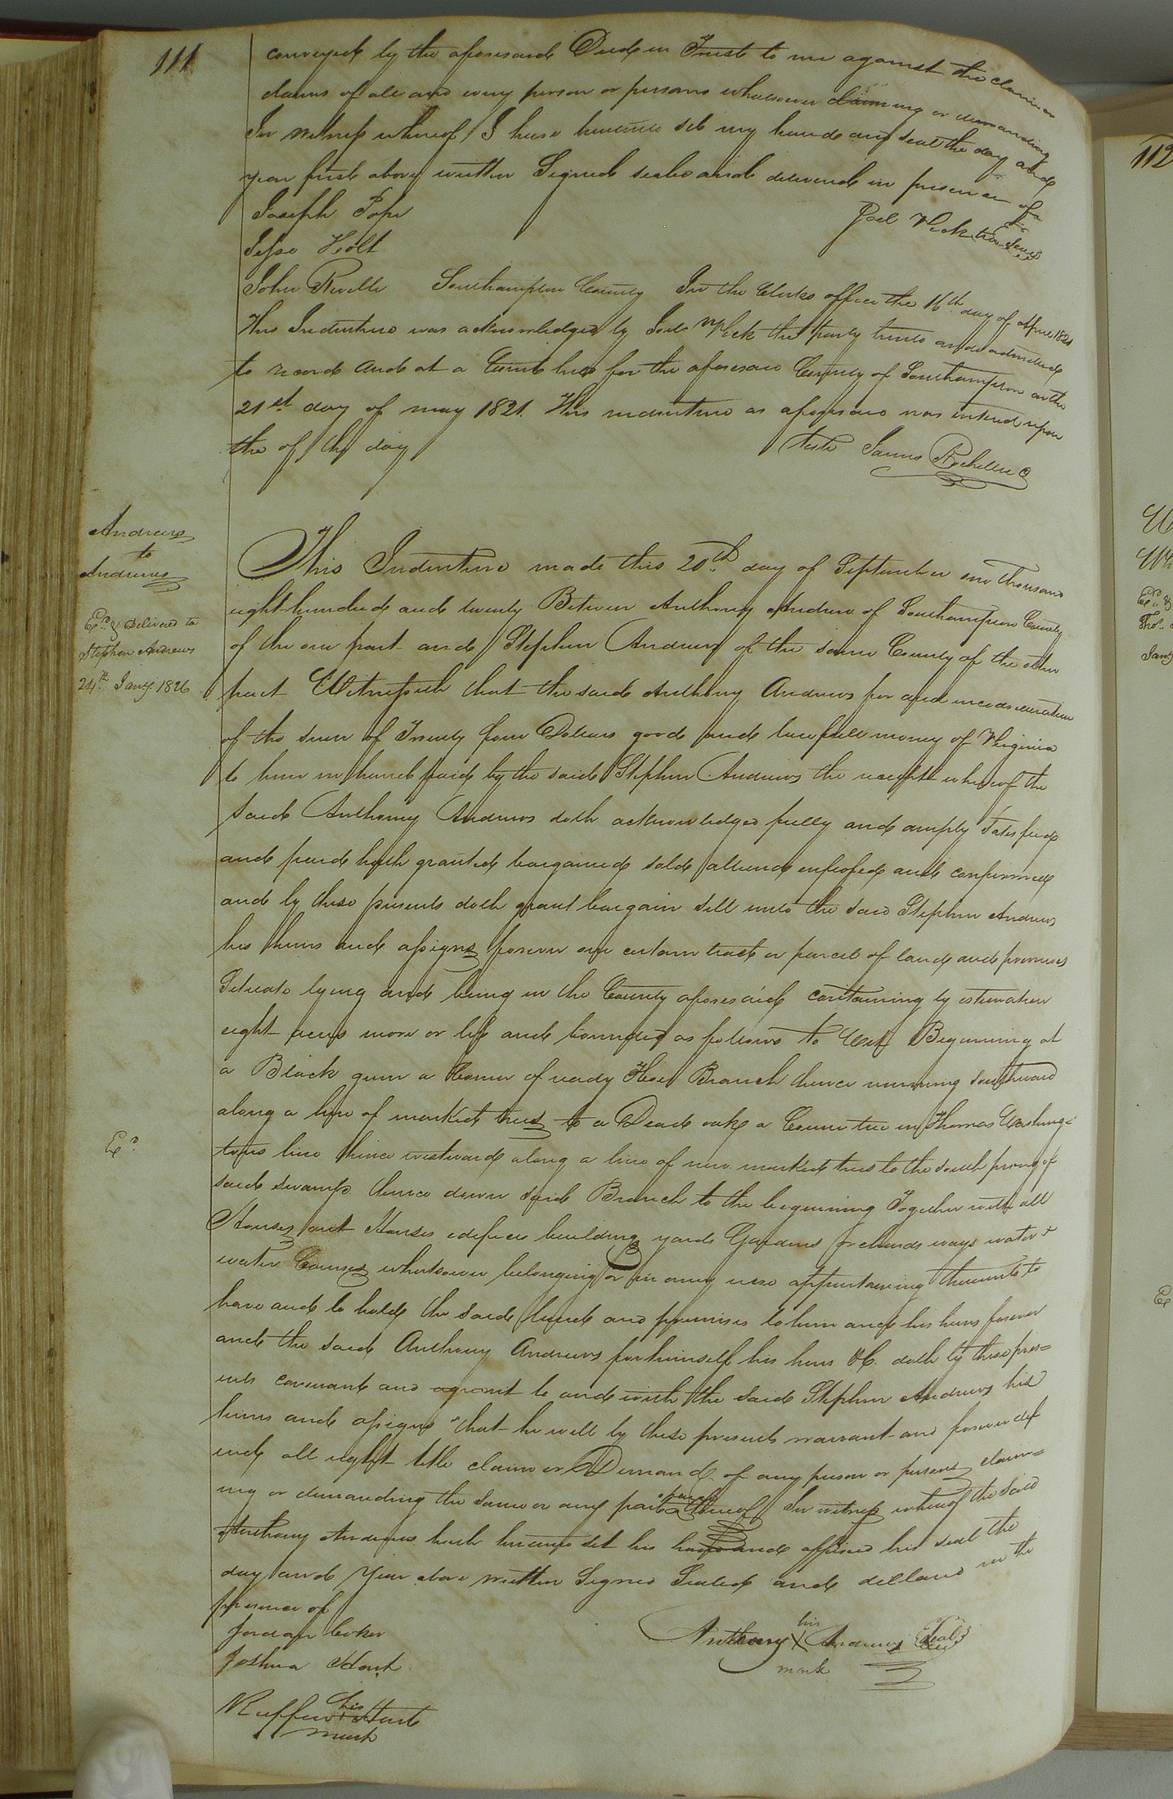 111
conveyed by the aforesaid Deed in Trust to me against the claim or
claims of all and every person or persons whatsoever claiming or demanding
In witness whereof I have hereunto set my hand and seal the day and
year first above written Signed sealed and delivered in presence of
Joseph Pope
Joel Vick trustee
Jesse Holt
John Reville Southampton County In the Clerks office the 16th day of April 1821
This Indenture was acknowledged by Joel Vick the party hereto and admitted
to record and at a Court held for the aforesaid County of Southampton on the
21st day of may 1821. This indenture as aforesaid was entered upon
the of the day
Teste James Rochelle C
Andrews
to
Andrews
Exd. & Delivered to
Stephen Andrews
24th Jany 1826
This Indenture made this 20th day of September one Thousand
eight hundred and twenty Between Anthony Andrew of Southampton County
of the one part and Stephen Andrews of the same County of the other
part Witnesseth that the said Anthony Andrews for and in consideration
of the sum of Twenty four Dollars good and lawfull money of Virginia
to him in hand paid by the said Stephen Andrews the receipt whereof the
said Anthony Andrews doth acknowledged fully and amply satisfied
and paid hath granted bargained sold aliened enfeofed and confirmed
and by these presents doth grant bargain sell unto the said Stephen Andrews
his heirs and assigns forever one certain tract or parcel of land and premises
Situate lying and being in the County aforesaid containing by estimation
eight acres more or less and bounded as follows to Wit Beginning at
a Black gum a Corner of ready Hoe Branch thence running southward
along a line of marked trees to a Dead oak a Corner tree in Thomas Washing-
tons line thence westward along a line of new marked trees to the south prong of
said swamp thence down said Branch to the beginning Together with all
Houses out Houses edifices building yards Gardens orchards ways water &
water Courses whatsoever belonging or in any wise appurtaining thereunto to
have and to hold the said land and premises to him and his heirs forever
and the said Anthony Andrews for himself his heirs &C. doth by these pres=
ents covenant and agreest to and with the said Stephen Andrews his
heirs and assigns that he will by these presents warrant and forever def
end all right title claim or Demand of any person or persons claim=
ing or demanding the same or any part thereof In witness whereof the said
Anthony Andrews hath hereunto set his hand and affixed his seal the
day and year above written Signed Sealed and delland in the
presence of
Jordan Coker
Anthony his X mark Andrews Seal
Joshua Hart
Ruffin his X mark Hart
Exd.
112